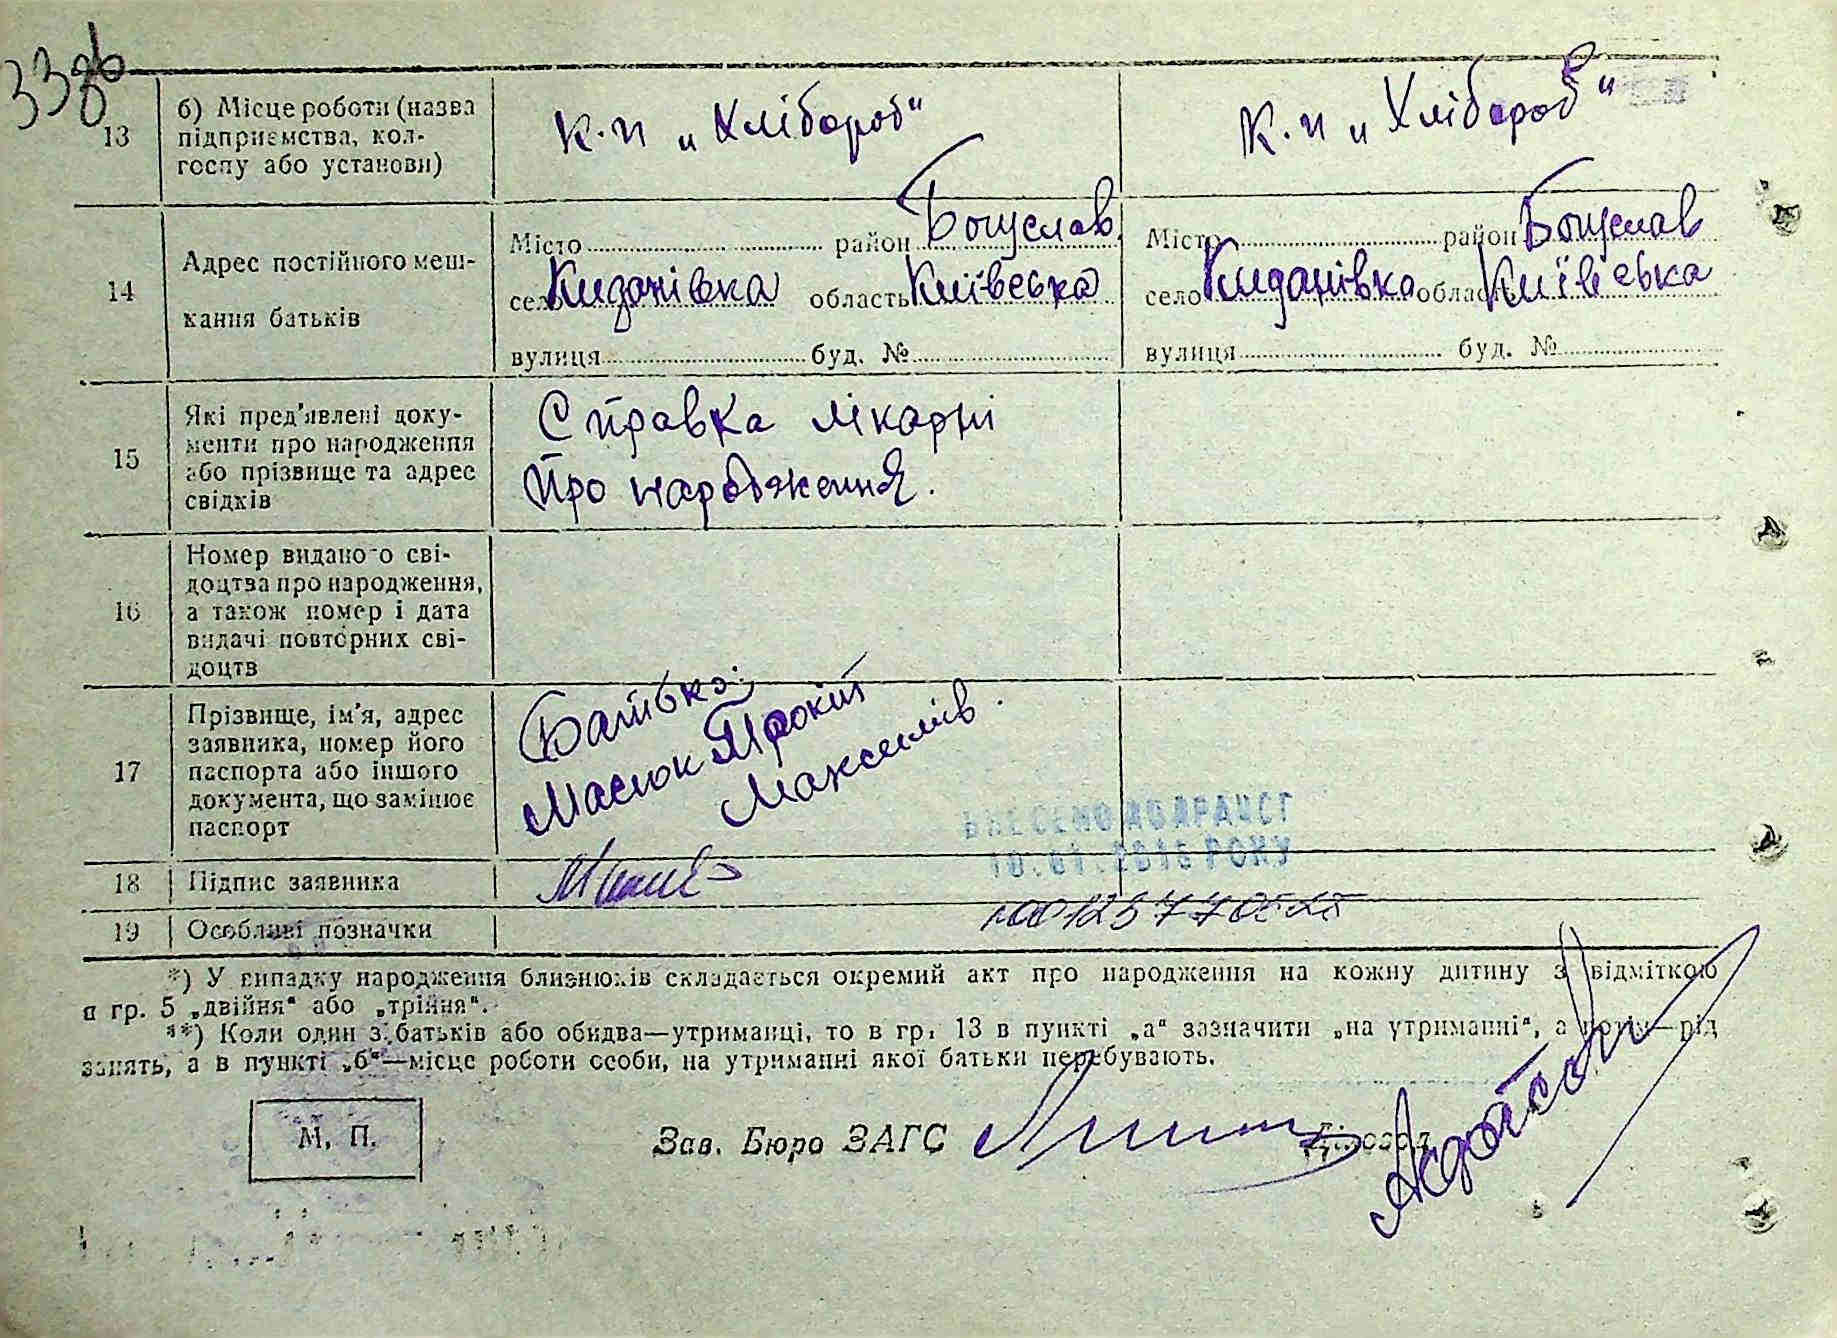 338
13
б) Місце роботи (назва
підприємства, кол-
госпу або установи)
к.п „Хлібороб"
к.п „Хлібороб"
14
Адрес постійного меш-
кання батьків
Місто район Богуслав
село Киданівка область Київська
вулиця буд. №
Місто район Богуслав
село Киданівка область Київська
вулиця буд. №
15
Які пред'явлені доку-
менти про народження
або прізвище та адрес
свідків
Справка лікарні
про народження.
16
Номер виданого сві-
доцтва про народження,
а також номер і дата
видачі повторних сві-
доцтв
17
Прізвище, ім'я, адрес
заявника, номер його
паспорта або іншого
документа, що замінює
паспорт
Батько:
Масюк Прокіп
Максимів.
ВНЕСЕНО ДО ДРАЦСГ
РОКУ
18
Підпис заявника
19
Особливі позначки
*) У випадку народження близнюків складається окремий акт про народження на кожну дитину з відміткою
в гр. 5 „двійня" або „трійня".
**) Коли один з батьків або обидва—утриманці, то в гр. 13 в пункті „а" зазначити „на утриманні", а потім—рід
занять, а в пункті „б"—місце роботи особи, на утриманні якої батьки перебувають.
М. П.
Зав. Бюро ЗАГС
Діловод